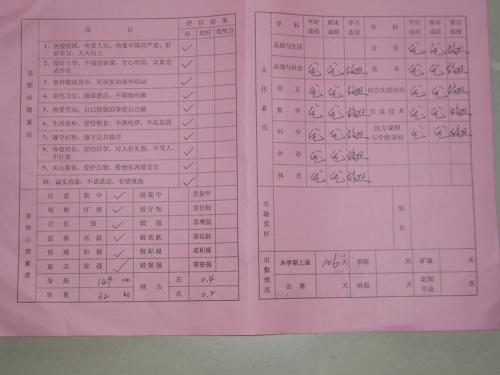 项 目 评估结果
好 较好 需努力
思想品德素质
1、热爱祖国，热爱人民，热爱中国共产党，好好学习，天天向上 ✓
2、按时上学，不随便缺课，专心听讲，认真完成作业 ✓
3、坚持锻炼身体，积极参加课外活动 ✓
4、讲究卫生，服装整洁，不随地吐痰 ✓
5、热爱劳动，自己能做的事情自己做 ✓
6、生活俭朴，爱惜粮食，不挑吃穿，不乱花钱 ✓
7、遵守纪律，遵守公共秩序 ✓
8、尊敬师长，团结同学，对人有礼貌，不骂人，不打架 ✓
9、关心集体，爱护公物，拾到东西要交公 ✓
10、诚实勇敢，不说谎话，有错就改 ✓
身体心理素质
注意 集中 ✓ 较集中 需集中
观察 仔细 ✓ 较仔细 需仔细
记忆 强 ✓ 较强 需增强
思维 活跃 ✓ 较活跃 需活跃
情绪 积极 ✓ 较积极 需积极
意志 坚强 ✓ 较坚强 需坚强
身高 149 cm 视力 左 0.4
体重 32 kg 右 0.2
文化素质
学科 平时成绩 期末成绩 学习态度 学科 平时成绩 期末成绩 学习态度
品德与生活 音乐 优 优
品德与社会 优 优 美术 优 优
语文 优 优 综合实践活动 优 优
数学 优 优 信息技术 优 优
科学 优 优 地方课程与学校课程 优 优
外语 优 优
体育 优 优
兴趣爱好 特长
出勤情况
本学期上课 106 天 事假 天 旷课 天
出席 天 病假 天 迟到早退 次